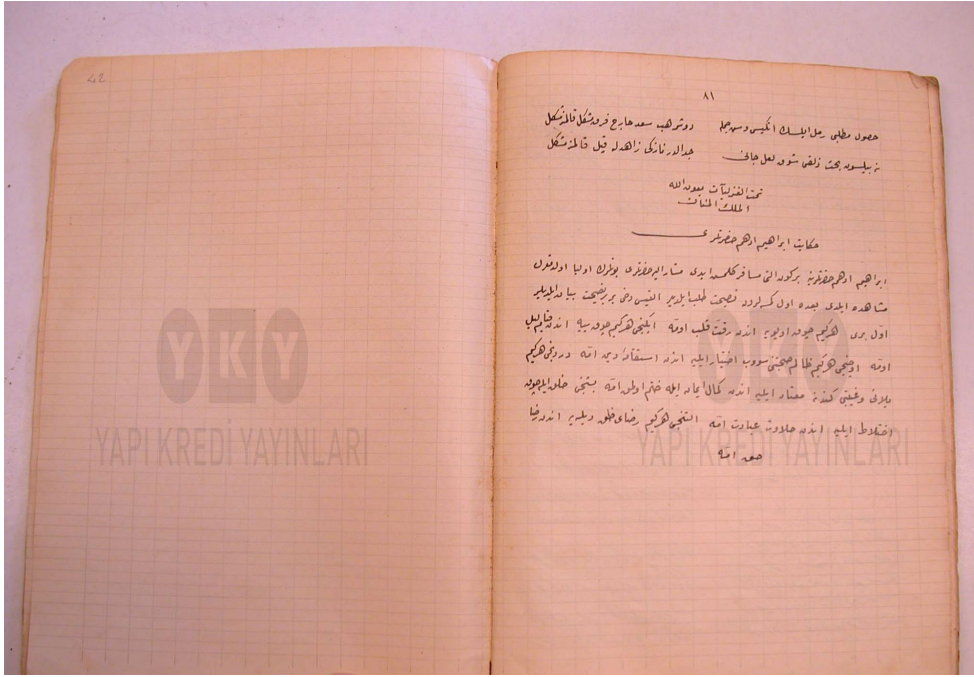 42
٨١
حصول مطلبی رمل ایلسك انكیس
نه بیلسون بحث زلفی شوق لعل جانی جدالدر نازكی زاهدله قیل قالمز مشكل
تمت الغزلیات بعون الله
الملك المنان
حكایت ابراهیم ادهم حضرتلری
ابراهیم ادهم حضرتلرینه بركون التی مسافر كلمش ایدی مشار الیه حضرتلری بونلرك اولیا اولدقلرن
مشاهده ایلدی بعده اول كسه لردن نصیحت طلب ایلدیلر التیسی دخی برر نصیحت بیان ایلدیلر
اول بری هركیم چوق اویویه اندن رقت قلب اومه ایكنجی هركیم چوق ییه اندن قیام لیل
اومه اوچنجی هركیم ظالم صحبتنی سووب اختیار ایلیه اندن استقامت دین اومه دردنجی هركیم
یلانی وغیبتی كندینه معتاد ایلیه اندن كمال ایمان ایله ختم اولمق اومه بشنجی خلق ایله چوق
اختلاط ایلیه اندن حلاوت عبادت اومه التنجی هركیم رضای خلق دیلیه اندن رضا
حق اومه
YKY YKY
YAPI KREDİ YAYINLARI YAPI KREDİ YAYINLARI